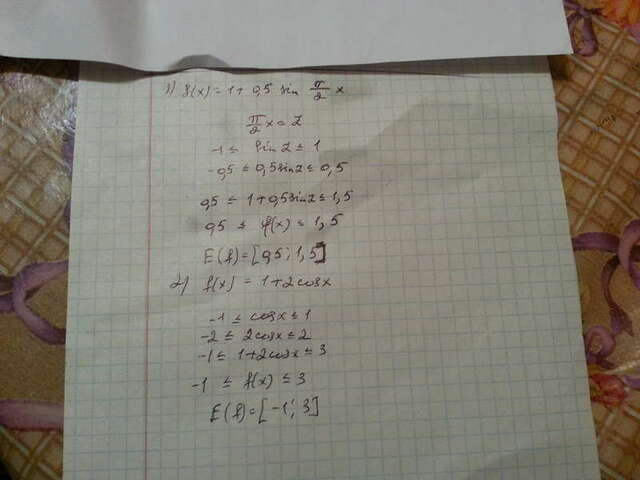 1) f(x) = 1 + 0,5 sin π/2 x
π/2 x = z
-1 ≤ sin z ≤ 1
-0,5 ≤ 0,5 sin z ≤ 0,5
0,5 ≤ 1 + 0,5 sin z ≤ 1,5
0,5 ≤ f(x) ≤ 1,5
E(f) = [0,5; 1,5]
2) f(x) = 1 + 2cosx
-1 ≤ cosx ≤ 1
-2 ≤ 2cosx ≤ 2
-1 ≤ 1 + 2cosx ≤ 3
-1 ≤ f(x) ≤ 3
E(f) = [-1; 3]